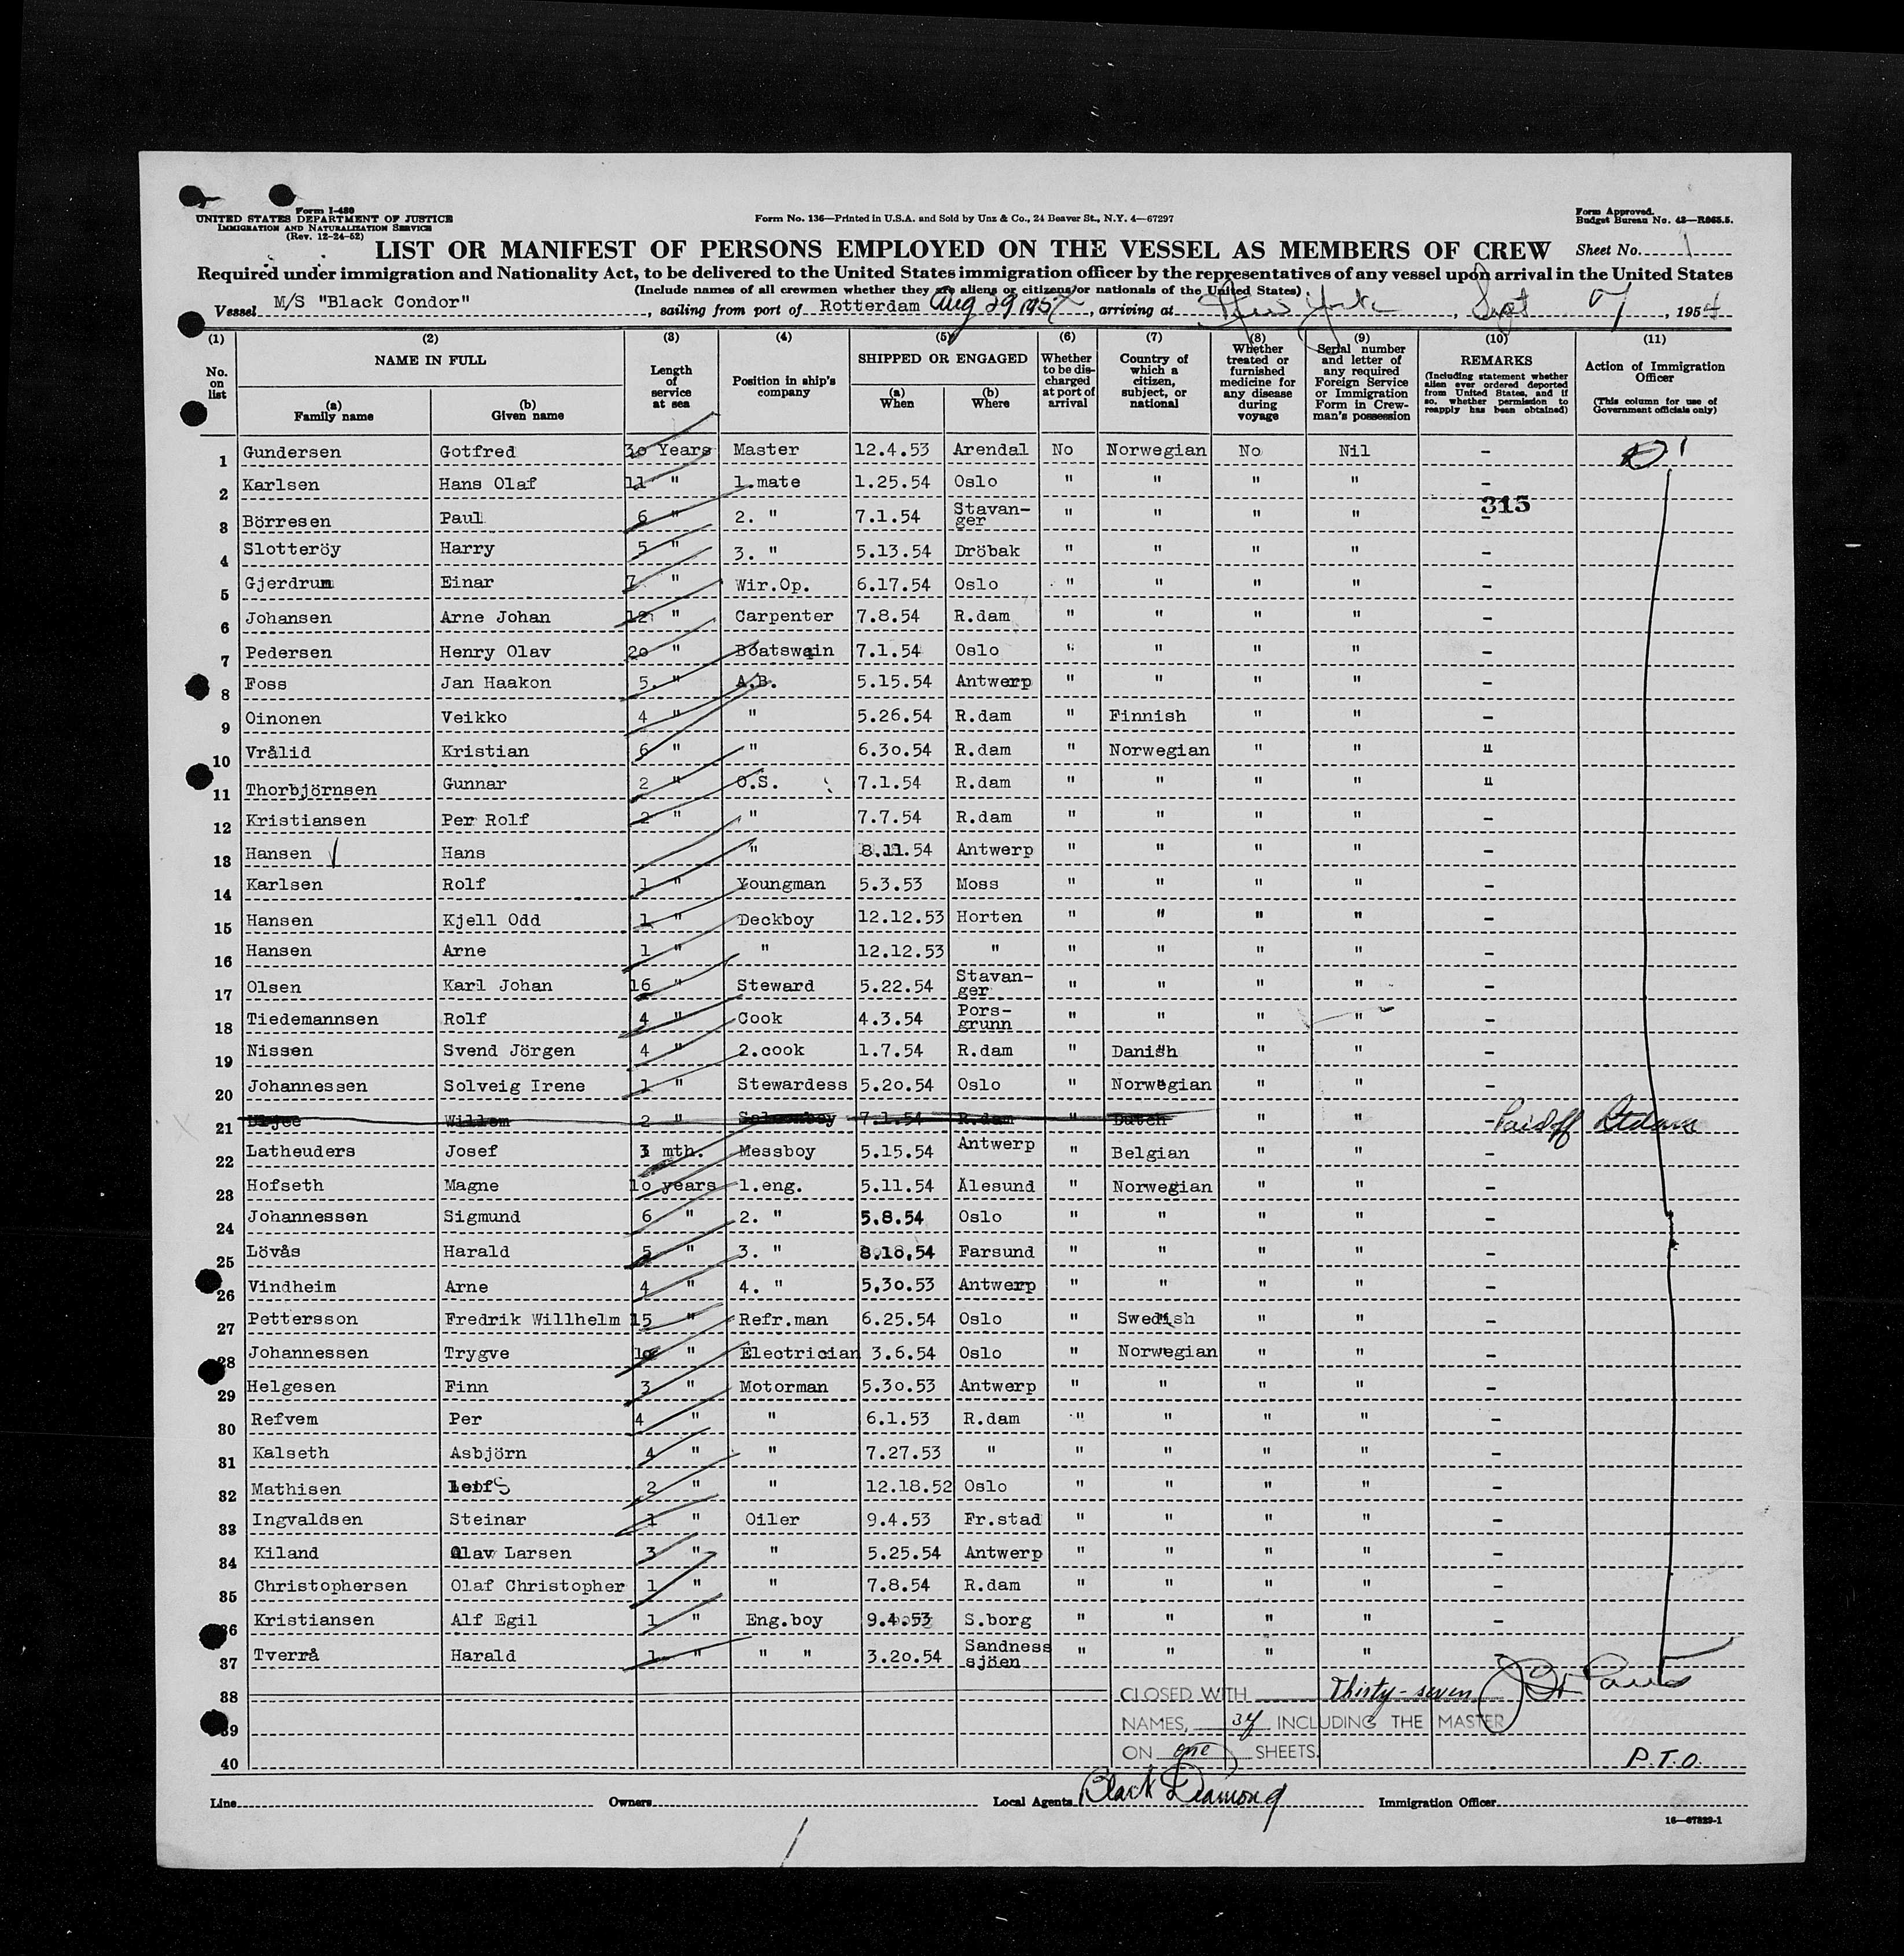 Form I-480
UNITED STATES DEPARTMENT OF JUSTICE
IMMIGRATION AND NATURALIZATION SERVICE
(Rev. 12-24-52)
Form No. 136—Printed in U.S.A. and Sold by Unz & Co., 24 Beaver St., N.Y. 4—67297
Form Approved.
Budget Bureau No. 43—R065.5.
LIST OR MANIFEST OF PERSONS EMPLOYED ON THE VESSEL AS MEMBERS OF CREW Sheet No. 1
Required under immigration and Nationality Act, to be delivered to the United States immigration officer by the representatives of any vessel upon arrival in the United States
(Include names of all crewmen whether they are aliens or citizens or nationals of the United States)
Vessel M/S "Black Condor", sailing from port of Rotterdam Aug 29 1954, arriving at New York, Sept 07, 1954
(1) (2) (3) (4) (5) (6) (7) (8) (9) (10) (11)
No. on list
NAME IN FULL
(a) Family name
(b) Given name
Length of service at sea
Position in ship's company
SHIPPED OR ENGAGED
(a) When
(b) Where
Whether to be discharged at port of arrival
Country of which a citizen, subject, or national
Whether treated or furnished medicine for any disease during voyage
Serial number and letter of any required Foreign Service or Immigration Form in Crewman's possession
REMARKS
(Including statement whether alien ever ordered deported from United States, and if so, whether permission to reapply has been obtained)
Action of Immigration Officer
(This column for use of Government officials only)
1 Gundersen Gotfred 3o Years Master 12.4.53 Arendal No Norwegian No Nil -
2 Karlsen Hans Olaf 11 " 1.mate 1.25.54 Oslo " " " " -
315
3 Börresen Paul 6 " 2. " 7.1.54 Stavan-ger " " " " -
4 Slotteröy Harry 5 " 3. " 5.13.54 Dröbak " " " " -
5 Gjerdrum Einar 7. " Wir.Op. 6.17.54 Oslo " " " " -
6 Johansen Arne Johan 12 " Carpenter 7.8.54 R.dam " " " " -
7 Pedersen Henry Olav 2o " Boatswain 7.1.54 Oslo " " " " -
8 Foss Jan Haakon 5. " A.B. 5.15.54 Antwerp " " " " -
9 Oinonen Veikko 4 " " 5.26.54 R.dam " Finnish " " -
10 Vrålid Kristian 6 " " 6.3o.54 R.dam " Norwegian " " "
11 Thorbjörnsen Gunnar 2 " O.S. 7.1.54 R.dam " " " " "
12 Kristiansen Per Rolf 2 " " 7.7.54 R.dam " " " " -
13 Hansen Hans " 8.11.54 Antwerp " " " " -
14 Karlsen Rolf 1 " Youngman 5.3.53 Moss " " " " -
15 Hansen Kjell Odd 1 " Deckboy 12.12.53 Horten " " " " -
16 Hansen Arne 1 " " 12.12.53 " " " " " -
17 Olsen Karl Johan 16 " Steward 5.22.54 Stavan-ger " " " " -
18 Tiedemannsen Rolf 4 " Cook 4.3.54 Pors-grunn " " " " -
19 Nissen Svend Jörgen 4 " 2.cook 1.7.54 R.dam " Danish " " -
20 Johannessen Solveig Irene 1 " Stewardess 5.2o.54 Oslo " Norwegian " " -
21 Willem 2 " 7.1.54 R.dam " Dutch " " - Paid off Rtdam
22 Latheuders Josef 3 mth. Messboy 5.15.54 Antwerp " Belgian " " -
23 Hofseth Magne 1o years 1.eng. 5.11.54 Ålesund " Norwegian " " -
24 Johannessen Sigmund 6 " 2. " 5.8.54 Oslo " " " " -
25 Lövås Harald 5 " 3. " 8.18.54 Farsund " " " " -
26 Vindheim Arne 4 " 4. " 5.3o.53 Antwerp " " " " -
27 Pettersson Fredrik Willhelm 15 " Refr.man 6.25.54 Oslo " Swedish " " -
28 Johannessen Trygve 1o " Electrician 3.6.54 Oslo " Norwegian " " -
29 Helgesen Finn 3 " Motorman 5.3o.53 Antwerp " " " " -
30 Refvem Per 4 " " 6.1.53 R.dam " " " " -
31 Kalseth Asbjörn 4 " " 7.27.53 " " " " " -
32 Mathisen Leif S 2 " " 12.18.52 Oslo " " " " -
33 Ingvaldsen Steinar 1 " Oiler 9.4.53 Fr.stad " " " " -
34 Kiland Olav Larsen 3 " " 5.25.54 Antwerp " " " " -
35 Christophersen Olaf Christopher 1 " " 7.8.54 R.dam " " " " -
36 Kristiansen Alf Egil 1 " Eng.boy 9.4.53 S.borg " " " " -
37 Tverrå Harald 1 " " " 3.2o.54 Sandness sjöen " " " " -
38 CLOSED WITH Thirty-seven
39 NAMES, 37 INCLUDING THE MASTER
40 ON one SHEETS. P.T.O.
Line Owners Local Agents Black Diamond Immigration Officer
16—67329-1